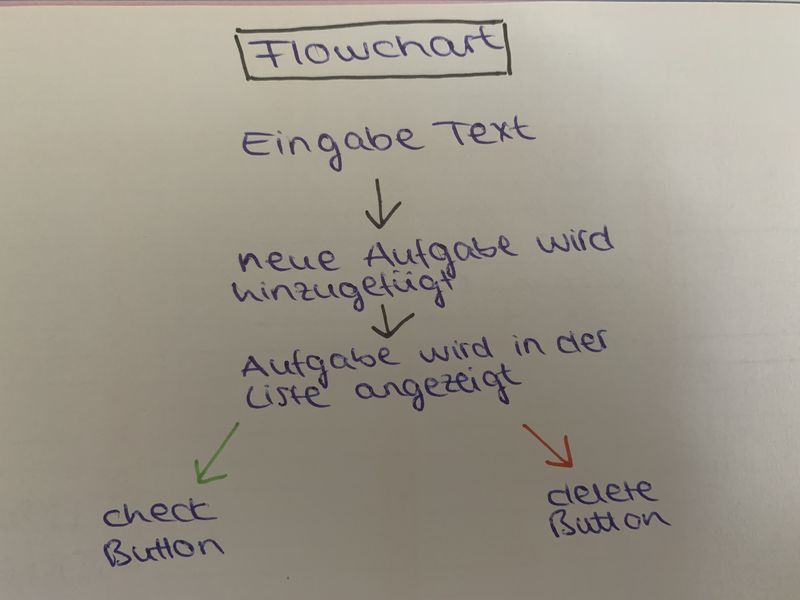 Flowchart
Eingabe Text
neue Aufgabe wird
hinzugefügt
Aufgabe wird in der
Liste angezeigt
check
Button
delete
Button